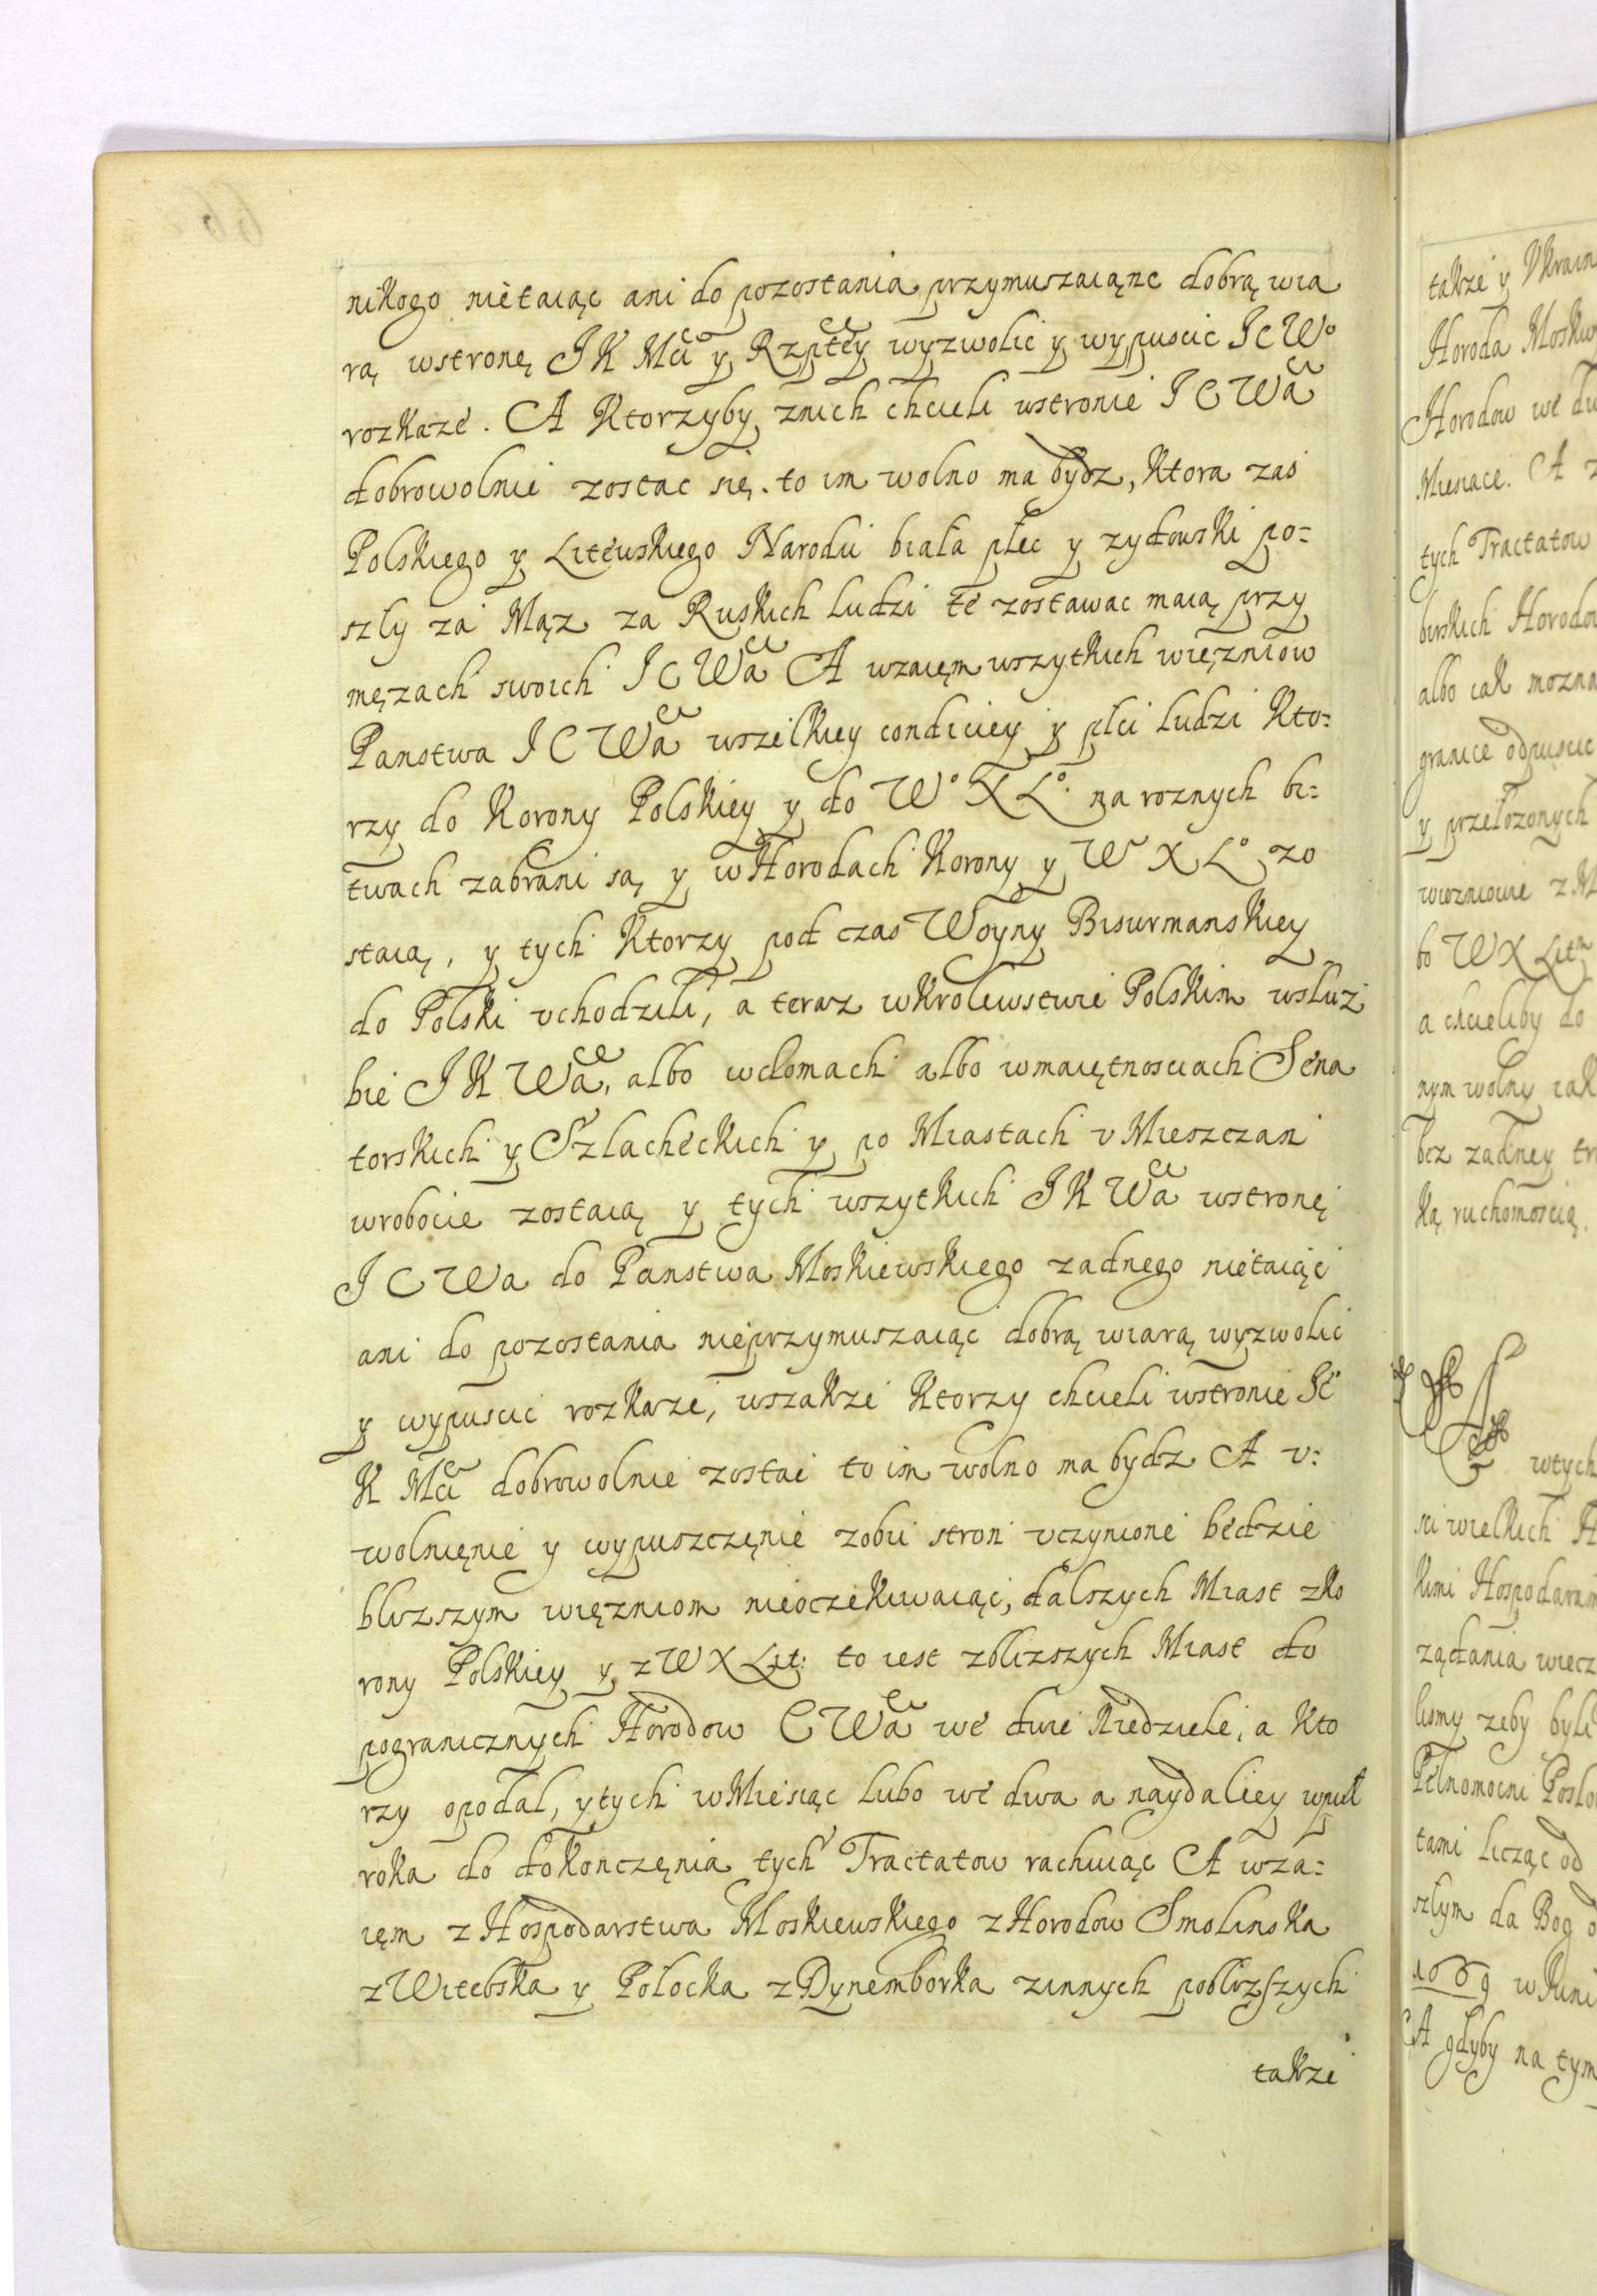 nikogo nietaiąc ani do pozostania przymuszaiąnc dobrą wia
rą wstronę JK Mci y Rzptey wyzwolic y wypuscic JCWo
rozkaze. A Ktorzyby znich chcieli wstronie JCWa
dobrowolnie zostac się. to im wolno ma bydz, Ktora zas
Polskiego y Litewskiego Narodu biała płec y zydowski po=
szly za Mąz za Ruskich ludzi te zostawac maią przy
męzach swoich JCWa A wzaięm wszytkich więzniow
Panstwa JCWa wszelkiey condiciey y płci ludzi Kto=
rzy do Korony Polskiey y do Wo X Lo. na roznych bi=
twach zabrani są y wHorodach Korony y W X Lo zo
staią, y tych Ktorzy pod czas Woyny Bisurmanskiey
do Polski vchodzili, a teraz wKrolewstwie Polskim wsłuz
bie JKWa, albo wdomach albo wmaiętnosciach Sena
torskich y Szlacheckich y po Miastach v Mieszczan
wrobocie zostaią y tych wszytkich JKWa wstronę
JCWa do Panstwa Moskiewskiego zadnego nietaiąc
ani do pozostania nieprzymuszaiąc dobrą wiarą wyzwolic
y wypuscic rozkaze, wszakze Ktorzy chcieli wstronie Je
K Mci dobrowolnie zostac to im wolno ma bydz A v=
wolnięnie y wypuszczęnie zobu stron vczynione bedzie
blizszym więzniom nieoczekiwaiąc, dalszych Miast zKo
rony Polskiey y zWXLit: to iest zblizszych Miast do
pogranicznych Horodow CWa we dwie Niedziele, a Kto
rzy opodal, ytych wMiesiąc lubo we dwa a naydaliey wpuł
roka do dokonczęnia tych Tractatow rachuiąc A wza=
ięm z Hospodarstwa Moskiewskiego zHorodow Smolinska
zWitebska y Połocka zDynemborka zinnych poblizszych
takze
takze y Vkrain
Horoda Moskw
Horodow we dw
Miesiące. A z
tych Tractatow
birskich Horodow
albo iak mozna
granice odpuscic
y przełozonych
wiezniowie z M
bo WX Litm
a chcieliby do
nym wolny iak
bez zadney tr
ką ruchomoscią.
wtych
sci wielkich H
kimi Hospodaram
ządania wiecz
lismy zeby byli
Pełnomocni Posło
tami licząc od
szlym da Bog
1669 wJuni
A gdyby na tym